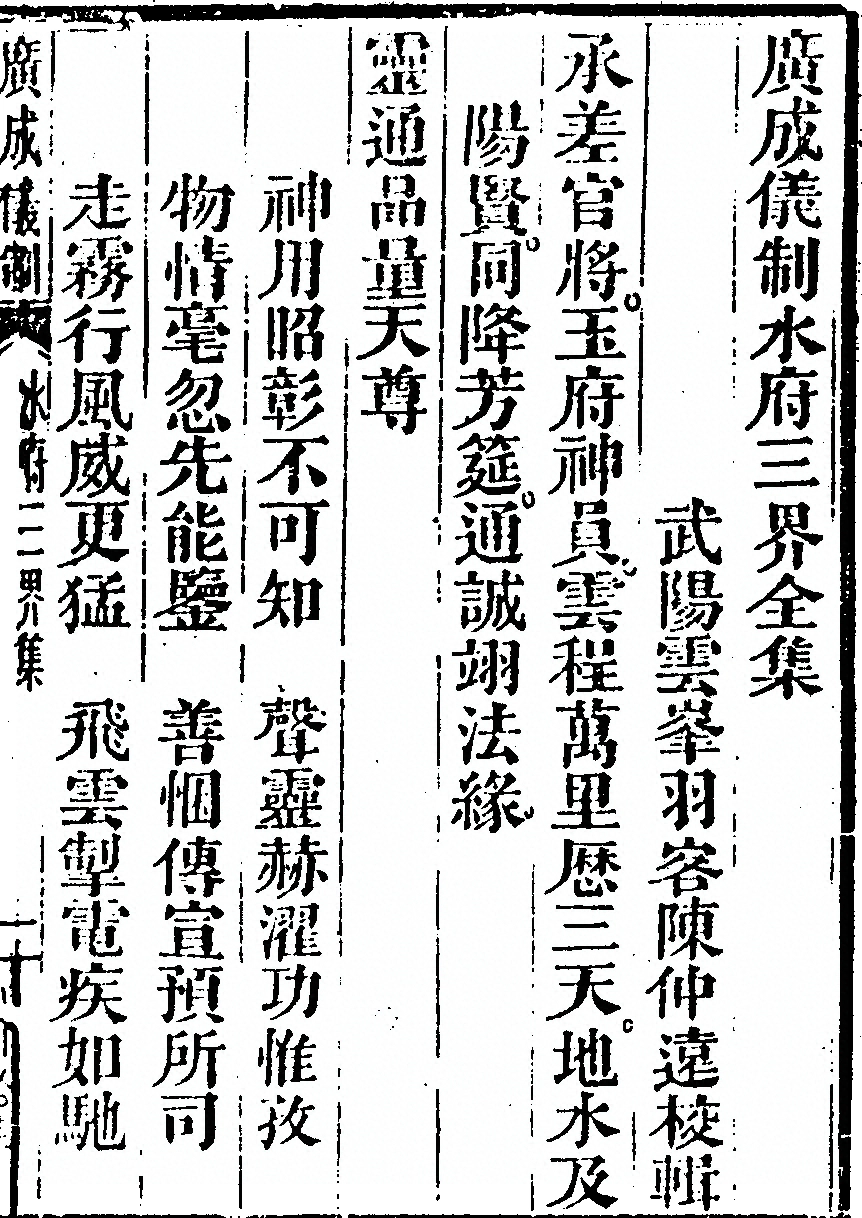 廣成儀制水府三界全集
武陽雲峯羽客陳仲遠校輯
承差官將。玉府神員。雲程萬里歷三天。地水及
陽賢。同降芳筵。通誠翊法緣。
靈通品量天尊
神用昭彰不可知　聲靈赫濯功惟孜
物情毫忽先能鑒　善悃傳宣預所司
走霧行風威更猛　飛雲掣電疾如馳
廣成儀制　水府三界集